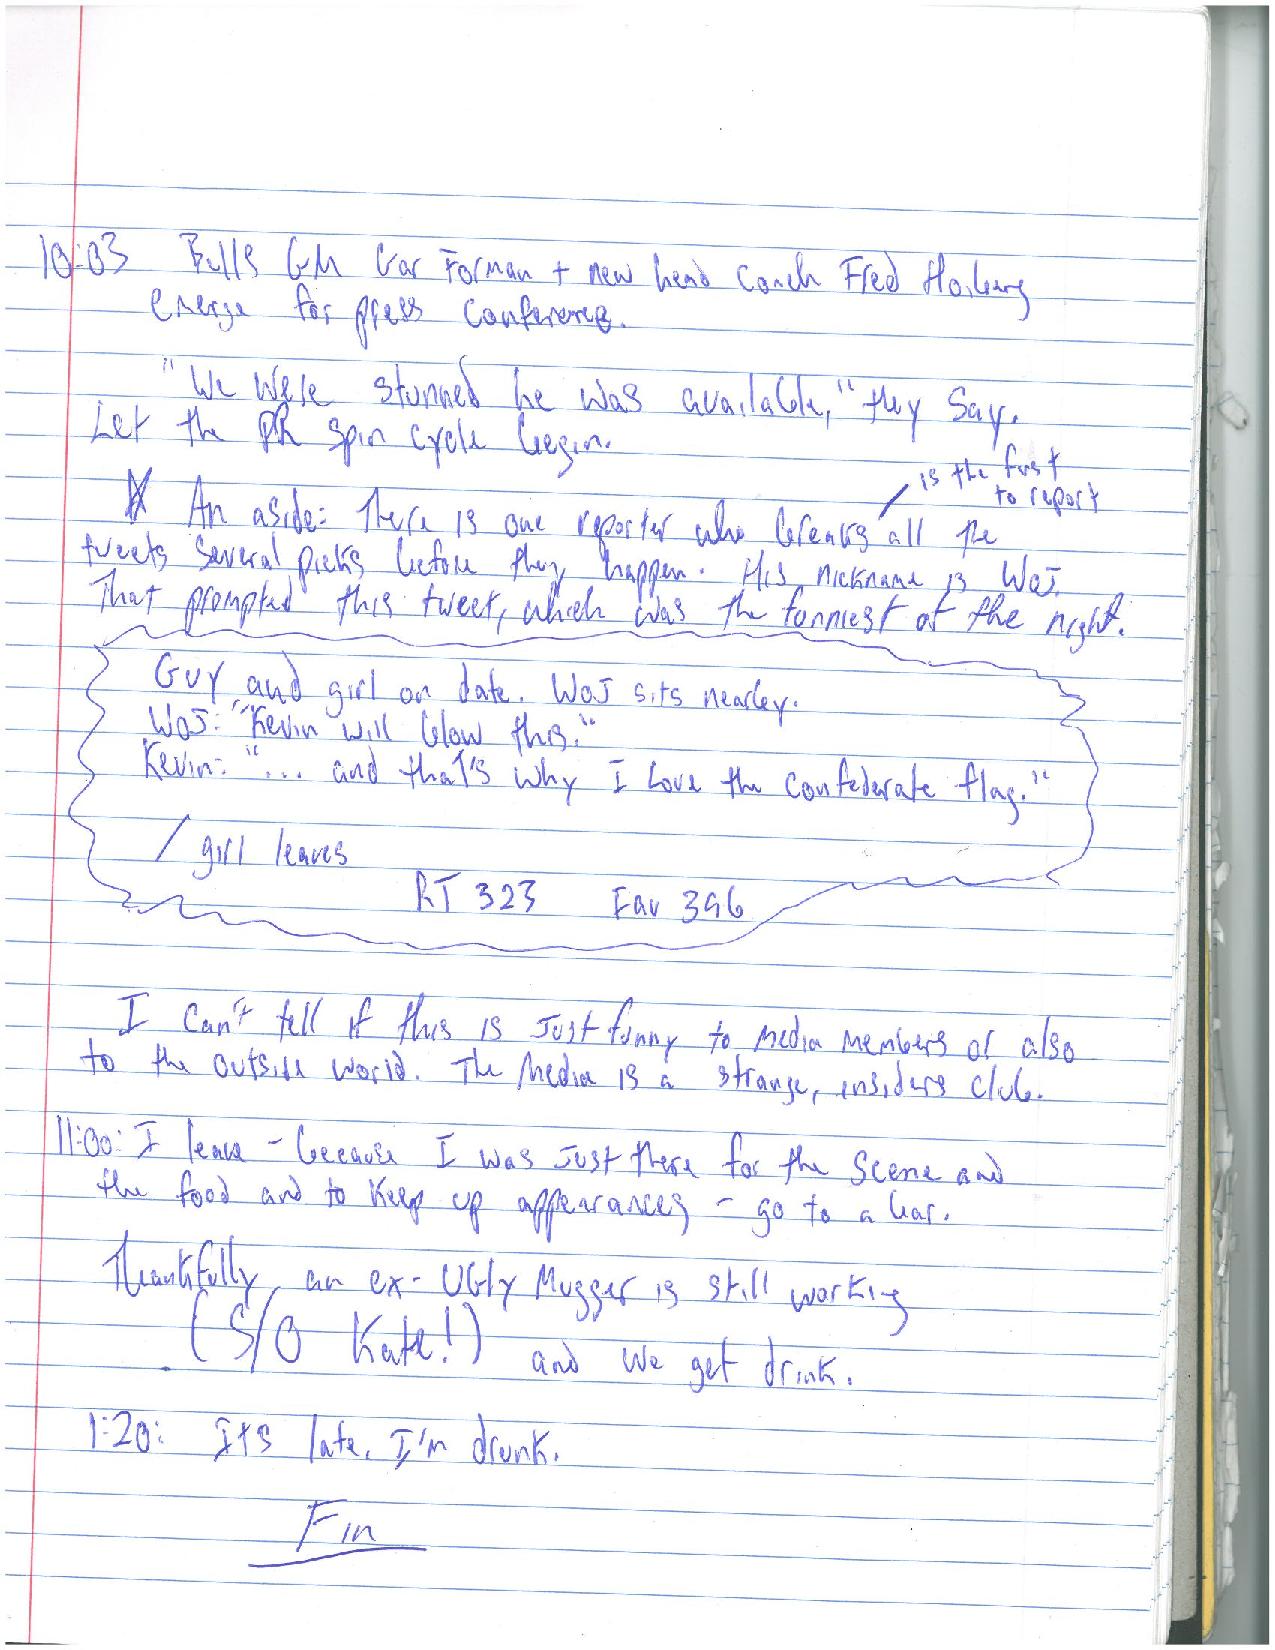 10:03 Bulls GM Gar Forman + new head coach Fred Hoiberg
emerge for press conference.
"We were stunned he was available," they say.
Let the PR spin cycle begin.
is the first
to report
* An aside: There is one reporter who breaks / all the
tweets several picks before they happen. His nickname is WOJ.
That prompted this tweet, which was the funniest of the night.
Guy and girl on date. WOJ sits nearby.
WOJ: "Kevin will blow this."
Kevin: "... and that's why I love the confederate flag."
/ girl leaves
RT 323 Fav 396
I can't tell if this is just funny to media members or also
to the outside world. The media is a strange, insiders club.
11:00: I leave - because I was just there for the scene and
the food and to keep up appearances - go to a bar.
Thankfully, an ex-Ugly Mugger is still working
(S/O Kate!) and we get drink.
1:20: Its late. I'm drunk.
Fin